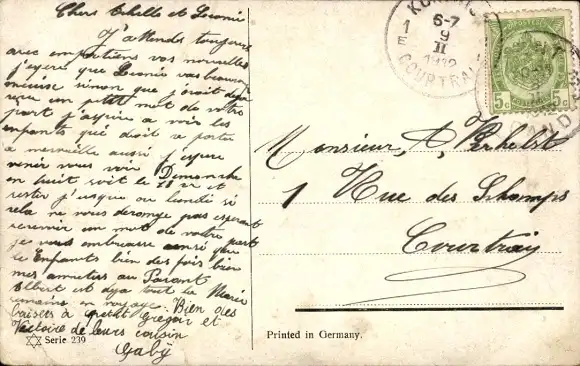 Chers Achille et Leonie
J'attendez toujours
avec empatiens vos nouvelles
j'espere que Leonie vas beaucoup
mieux sinon que j'orait deja
reçu un ptit mot de votre
part j'aspire a voir les
enfants que doit se porter
a merveille aussi j'espere
venir vous voir Dimanche
en huit soit le 18 cr et
rester j'usque au lundi si
cela ne vous derange pas esperant
recevoir un mot de votre part
je vous embrasse ainsi que
le Enfants bien des fois bien
mes amities au Parant
Albert est deja tout la
semaine en voyage. Bien des
baisers à petit Gregoir et
Victoire de leurs cousin
Gaby
Serie 239
KO
6-7
1 9
E II
1912
COURTRAI
5c 5c
Monsieur, A, Verhelst
1 Rue des Champs
Courtrai
Printed in Germany.